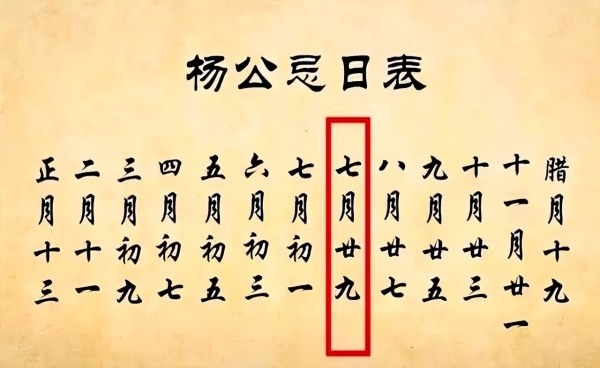 杨公忌日表
正月十三
二月十一
三月初九
四月初七
五月初五
六月初三
七月初一
七月廿九
八月廿七
九月廿五
十月廿三
十一月廿一
腊月十九